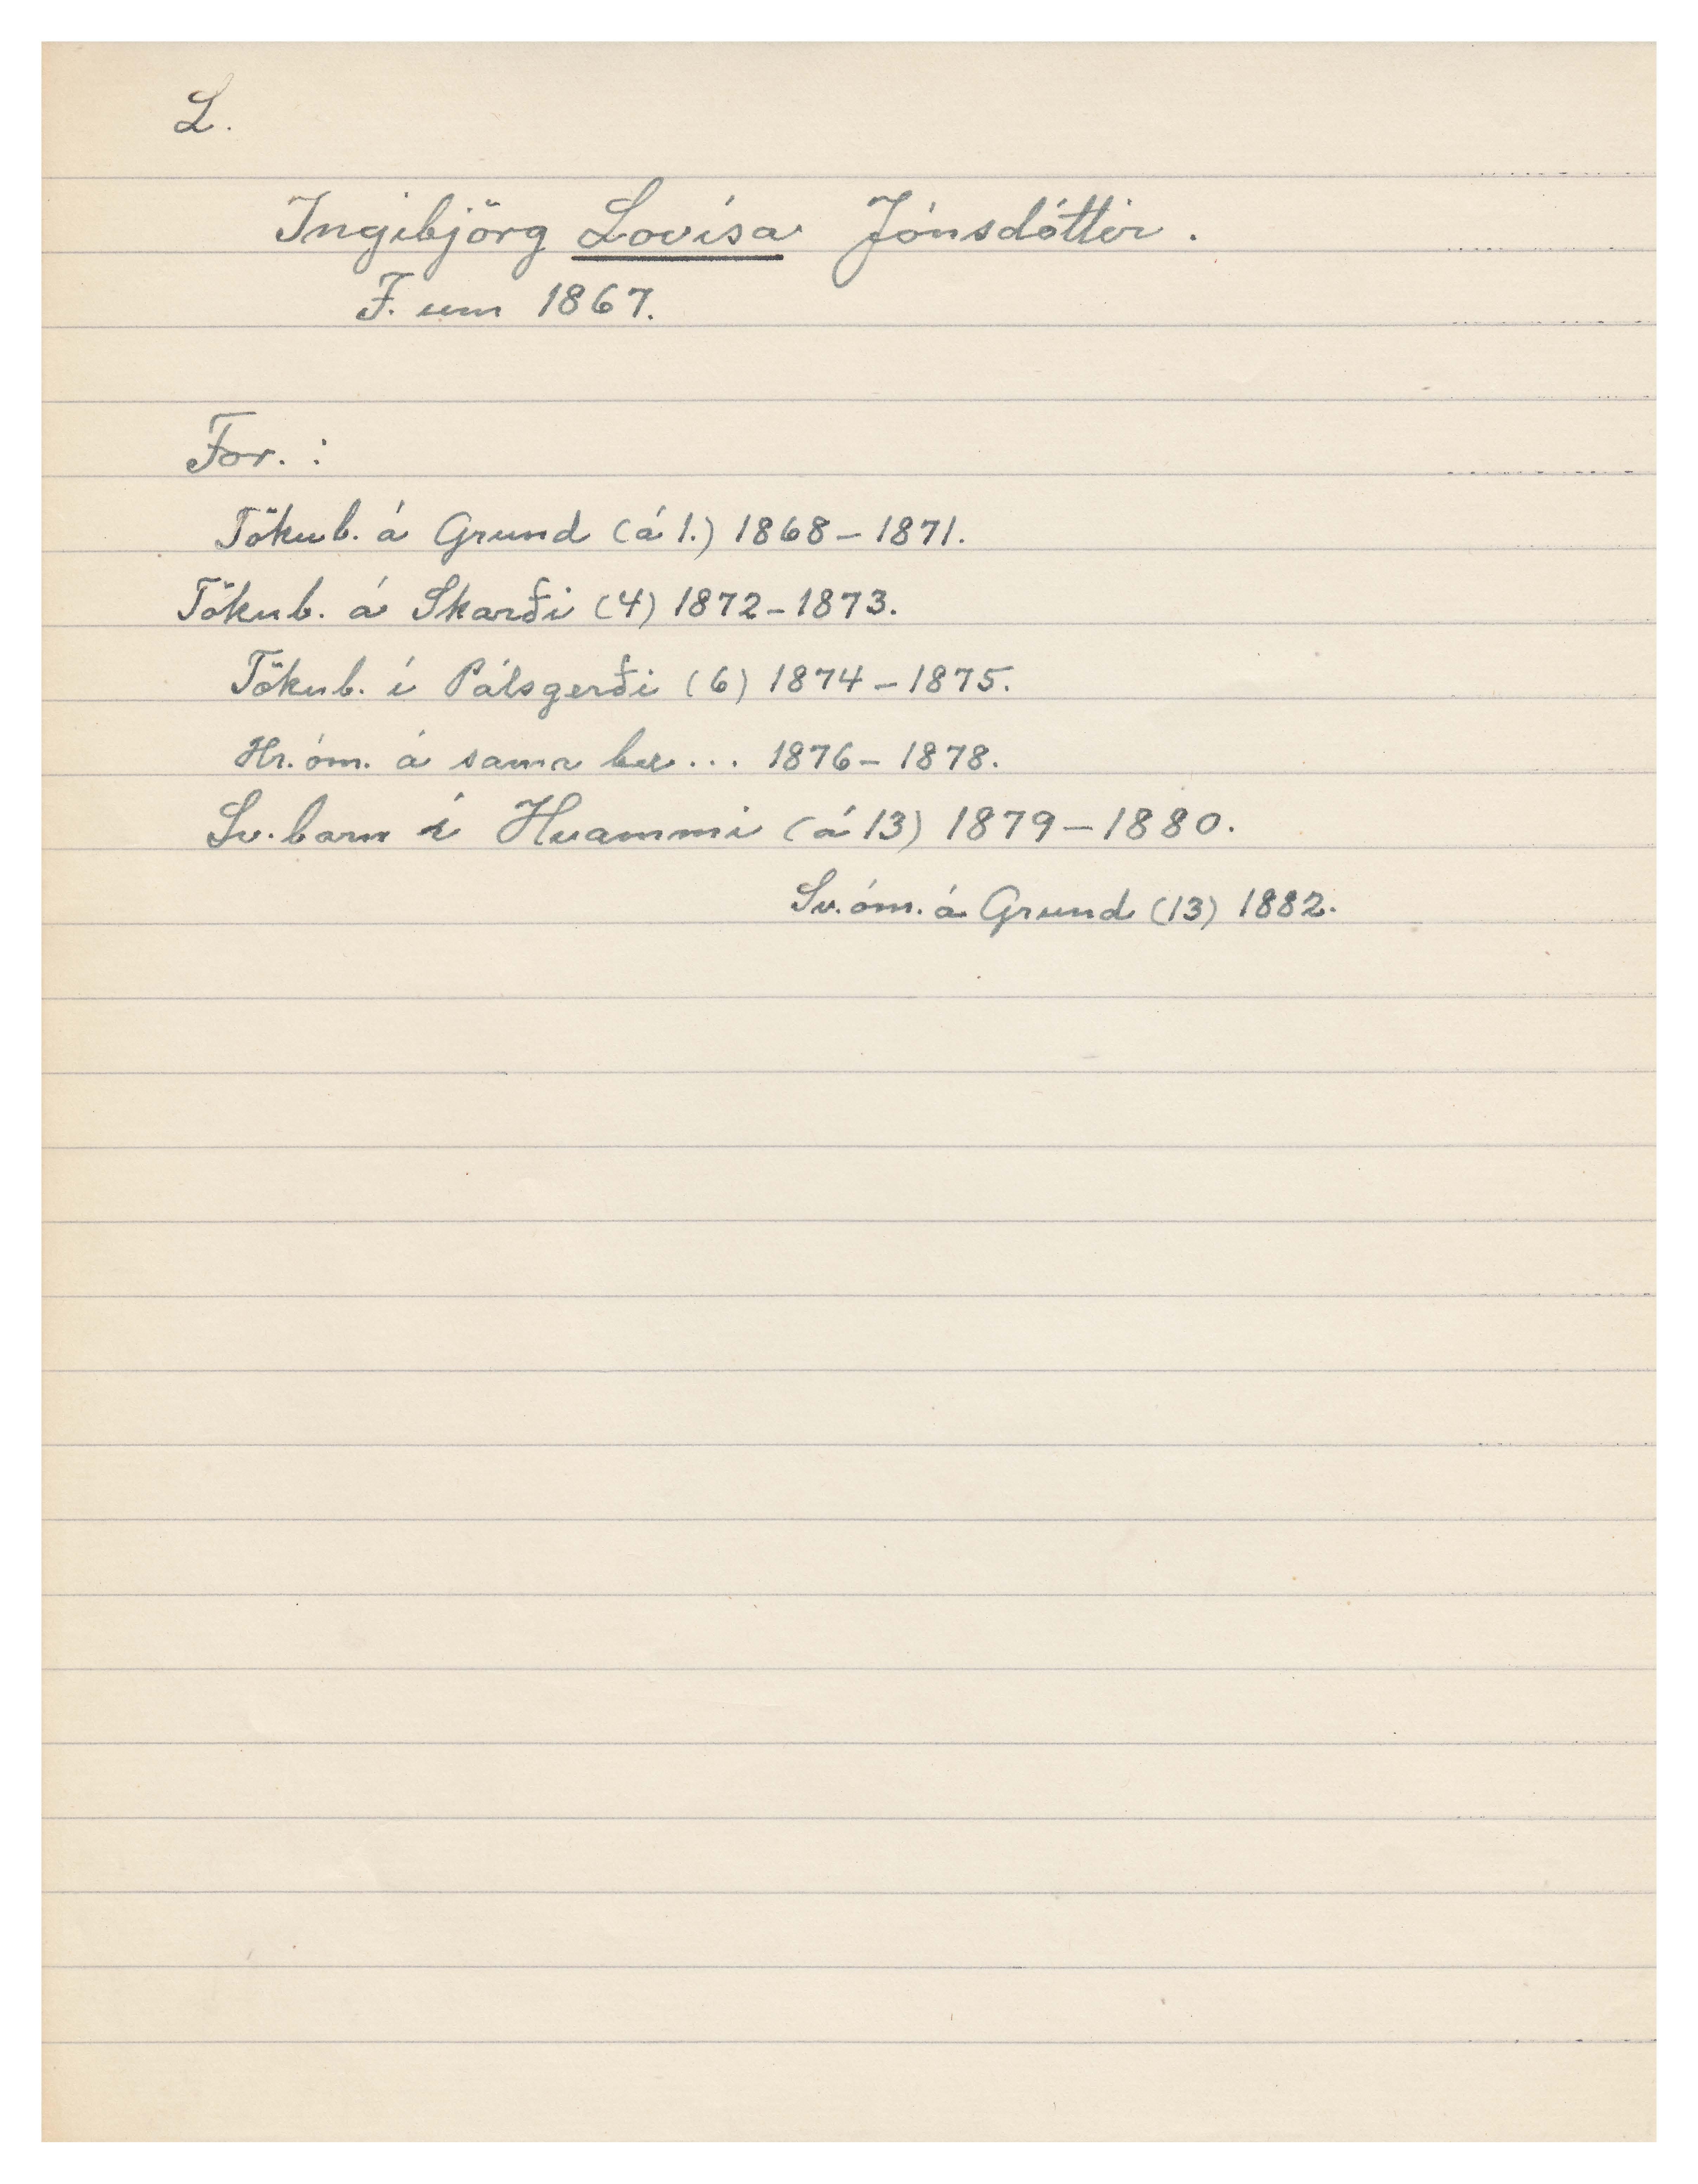 L.
Ingibjörg Lovísa Jónsdóttir.
F. um 1867.
For. :
Tökub. á Grund (á 1.) 1868-1871.
Tökub. á Skarði (4) 1872-1873.
Tökub. í Pálsgerði (6) 1874-1875.
Hr. óm. á sama bæ... 1876-1878.
Sv. barn í Hvammi (á 13) 1879-1880.
Sv. óm. á Grund (13) 1882.